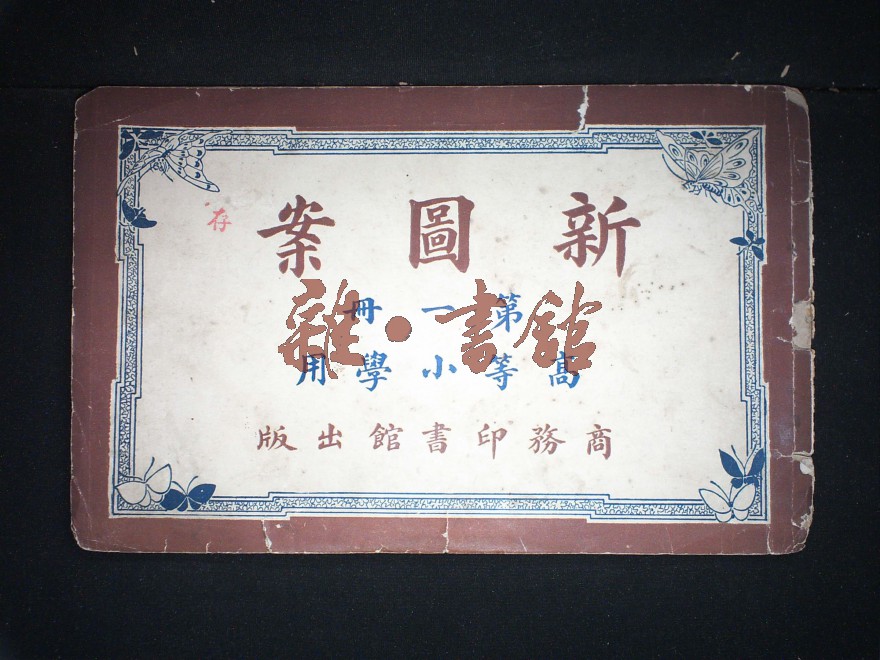 新圖案
第一冊
高等小學用
商務印書館出版
存
雜·書館